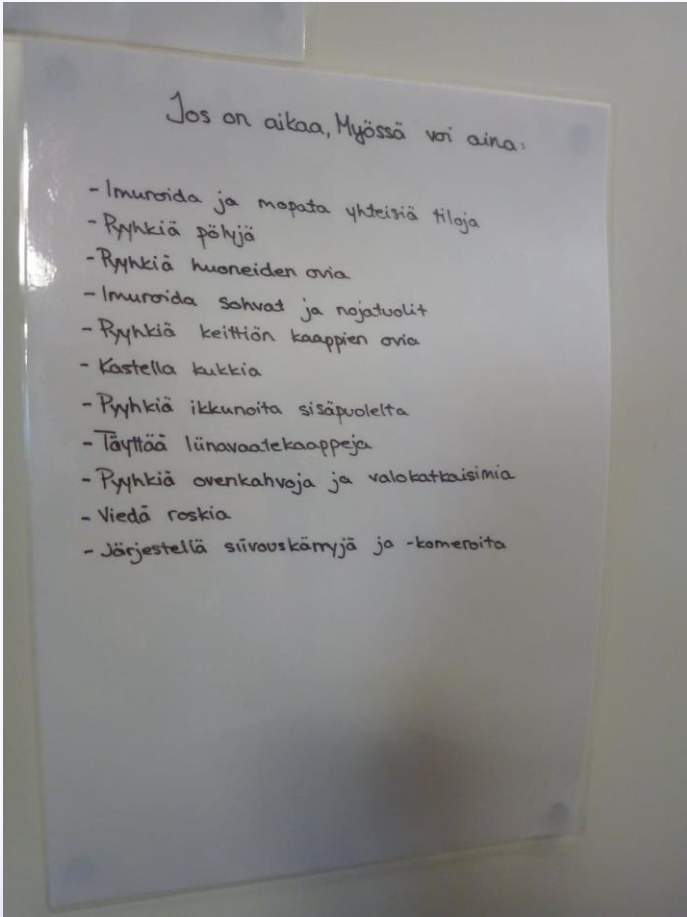 Jos on aikaa, Myössä voi aina:
- Imuroida ja mopata yhteisiä tiloja
- Pyyhkiä pölyjä
- Pyyhkiä huoneiden ovia
- Imuroida sohvat ja nojatuolit
- Pyyhkiä keittiön kaappien ovia
- Kastella kukkia
- Pyyhkiä ikkunoita sisäpuolelta
- Täyttää liinavaatekaappeja
- Pyyhkiä ovenkahvoja ja valokatkaisimia
- Viedä roskia
- Järjestellä siivouskärryjä ja -komeroita